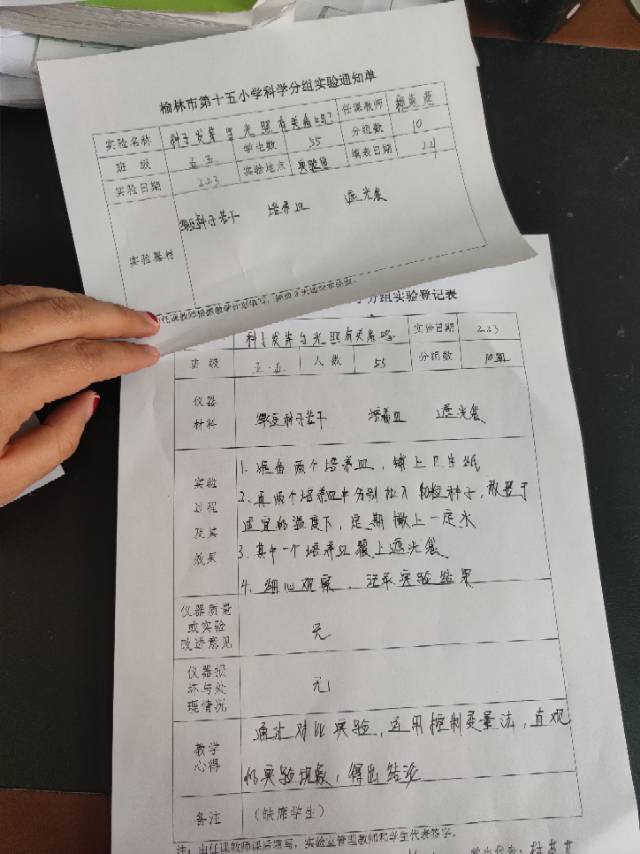 榆林市第十五小学科学分组实验通知单
实验名称 种子发芽与光照有关系吗? 任课教师
班级 五.五 学生数 55 分组数 10
实验日期 2.23 实验地点 实验室 填表日期 2.4
实验器材 绿豆种子若干 培养皿 遮光袋
分组实验登记表
种子发芽与光照有关系吗 实验日期 2.23
班级 五.五 人数 55 分组数 10组
仪器材料 绿豆种子若干 培养皿 遮光袋
实验过程及其效果
1. 准备两个培养皿,铺上卫生纸
2. 再两个培养皿中分别放入 种子,放置于
适宜的温度下,定期撒上一定水
3. 其中一个培养皿罩上遮光袋
4. 细心观察,记录实验结果
仪器质量或实验改进意见 无
仪器损坏与处理情况 无
教学心得
通过对比实验,运用控制变量法,直观
的实验现象,得出结论
备注 (缺席学生)
注:由任课教师课后填写,实验室管理教师和学生代表签字。
学生代表: